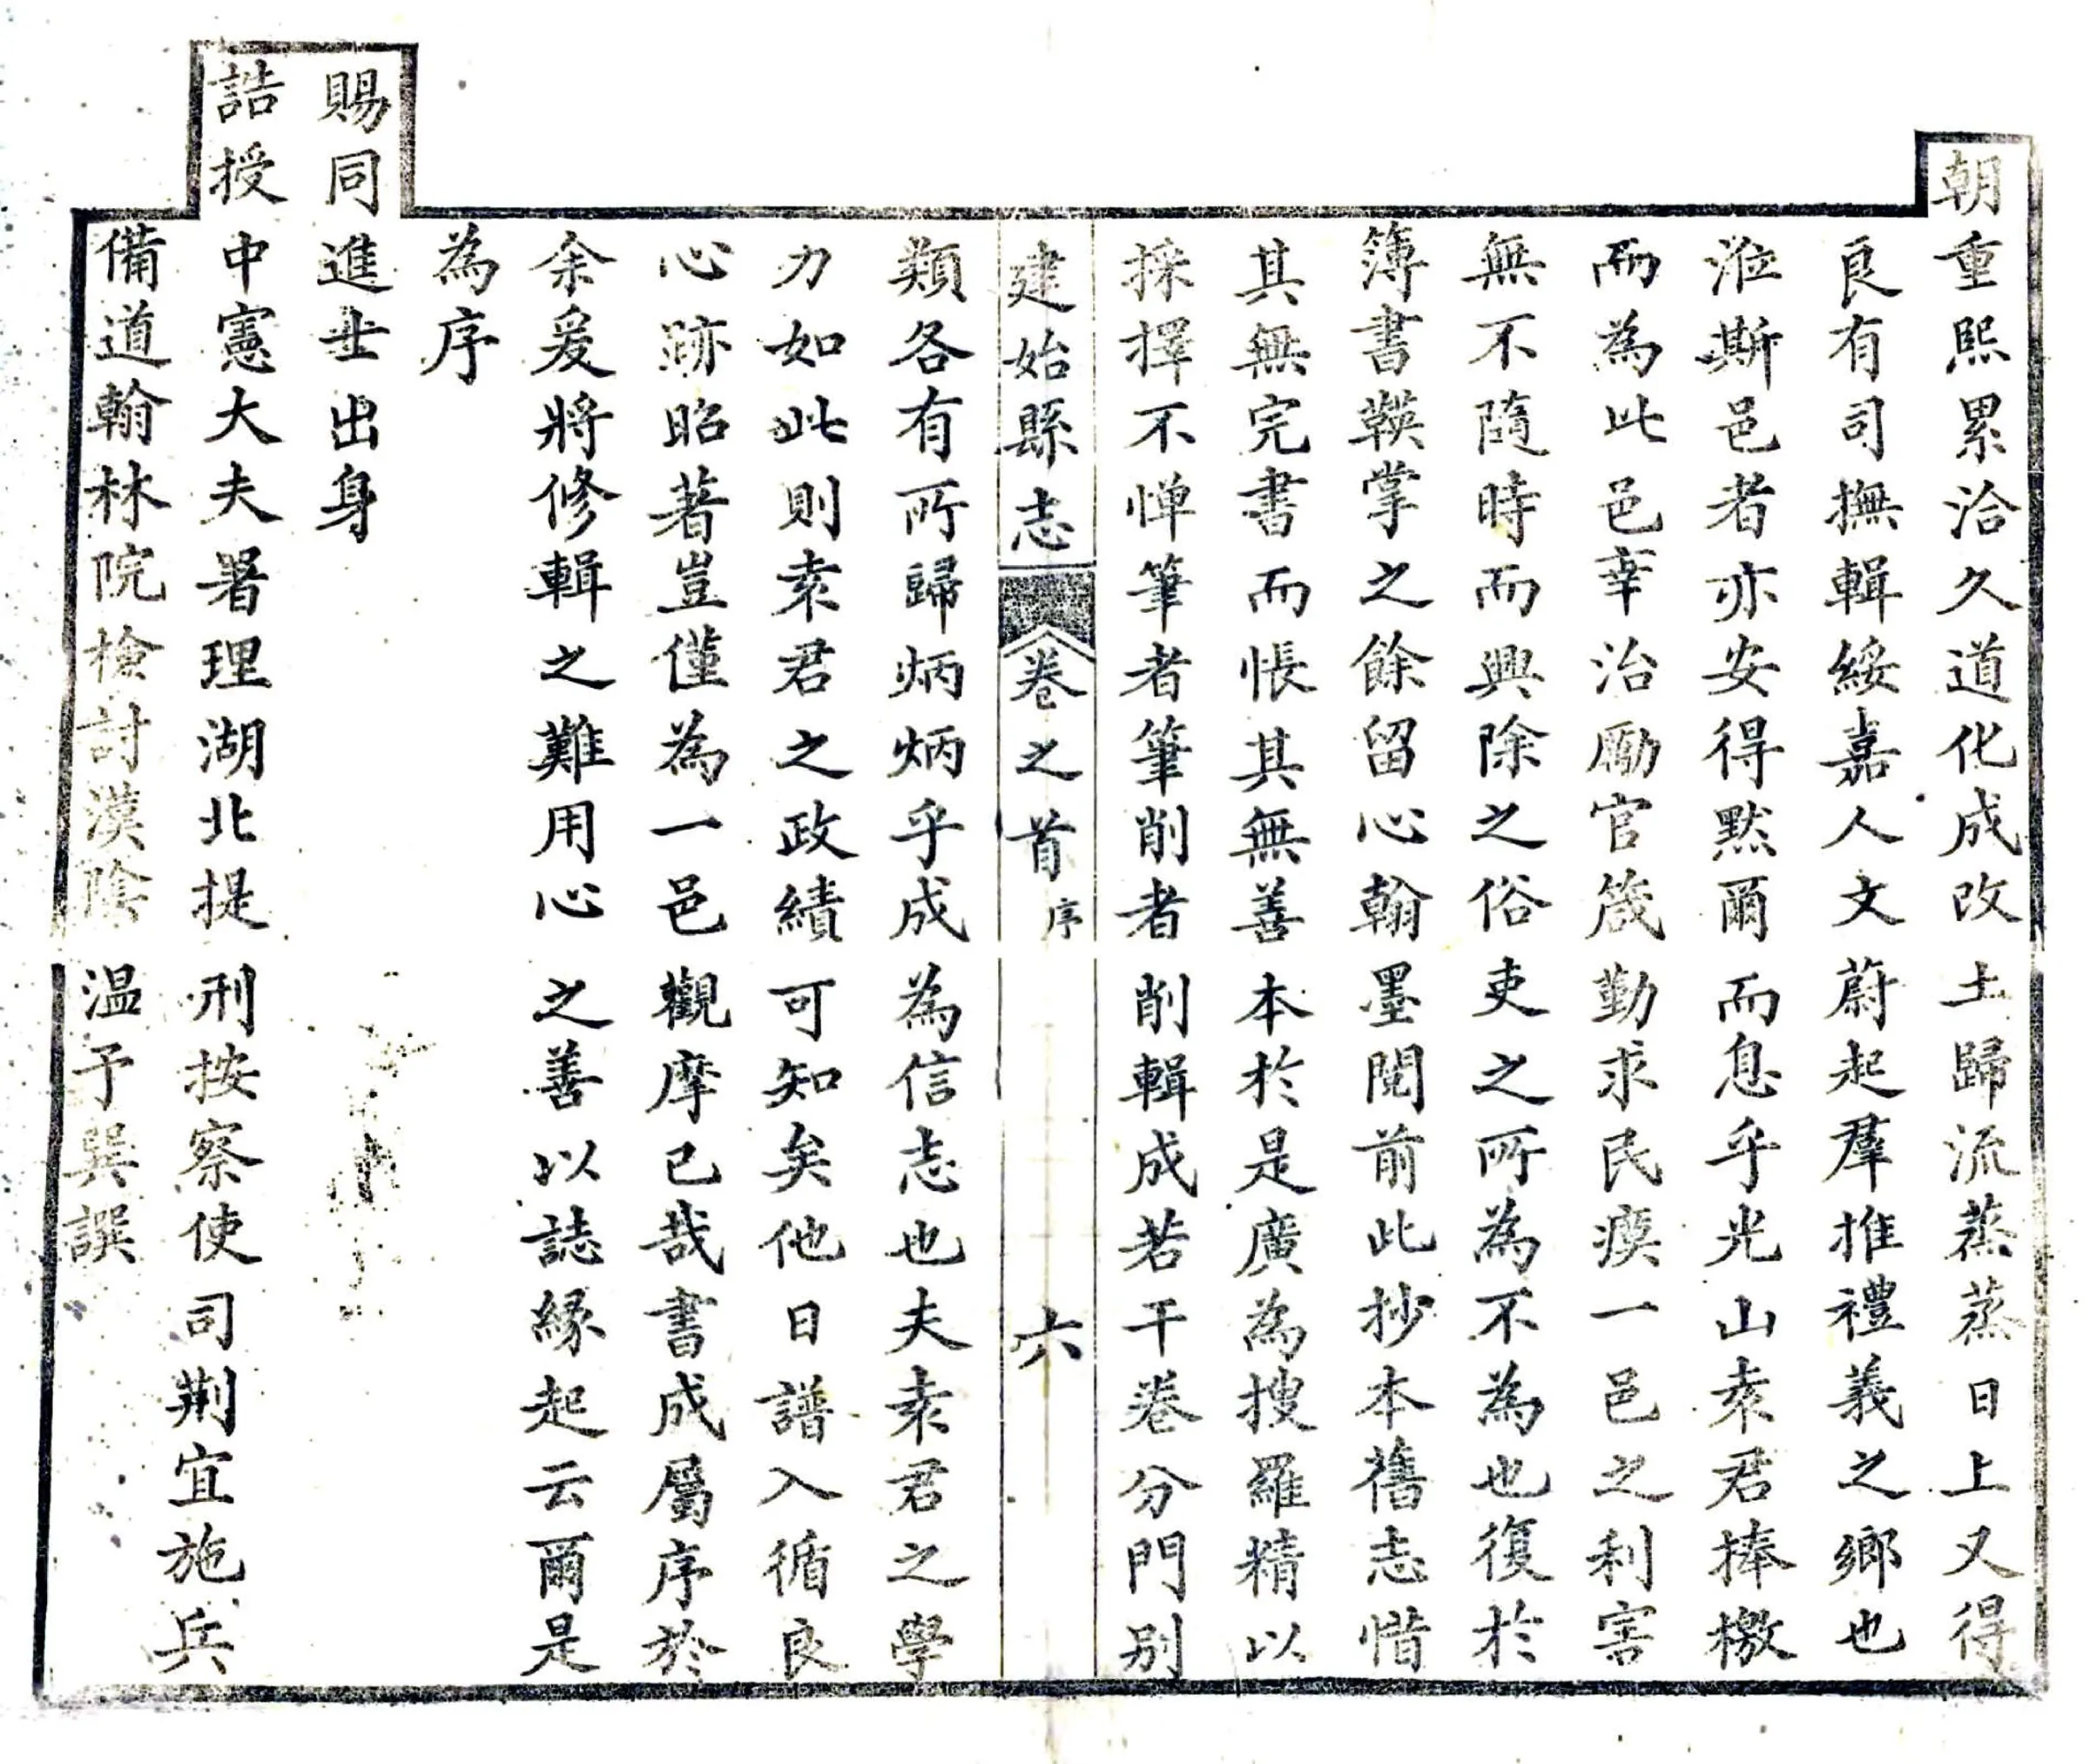 朝重熙累洽久道化成改土歸流蒸蒸日上又得
良有司撫輯綏嘉人文蔚起羣推禮義之鄉也
涖斯邑者亦安得黙爾而息乎光山袁君捧檄
而為此邑宰治勵官箴勤求民瘼一邑之利害
無不隨時而興除之俗吏之所為不為也復於
簿書鞅掌之餘留心翰墨閱前此抄本舊志惜
其無完書而悵其無善本於是廣為搜羅精以
採擇不憚筆者筆削者削輯成若干卷分門别
建始縣志 卷之首 序 六
類各有所歸炳炳乎成為信志也夫袁君之學
力如此則袁君之政績可知矣他日譜入循良
心跡昭著豈僅為一邑觀摩已哉書成屬序於
余爰將修輯之難用心之善以誌緣起云爾是
為序
賜同進士出身
誥授中憲大夫署理湖北提刑按察使司荆宜施兵
備道翰林院檢討漢陰温予巽譔